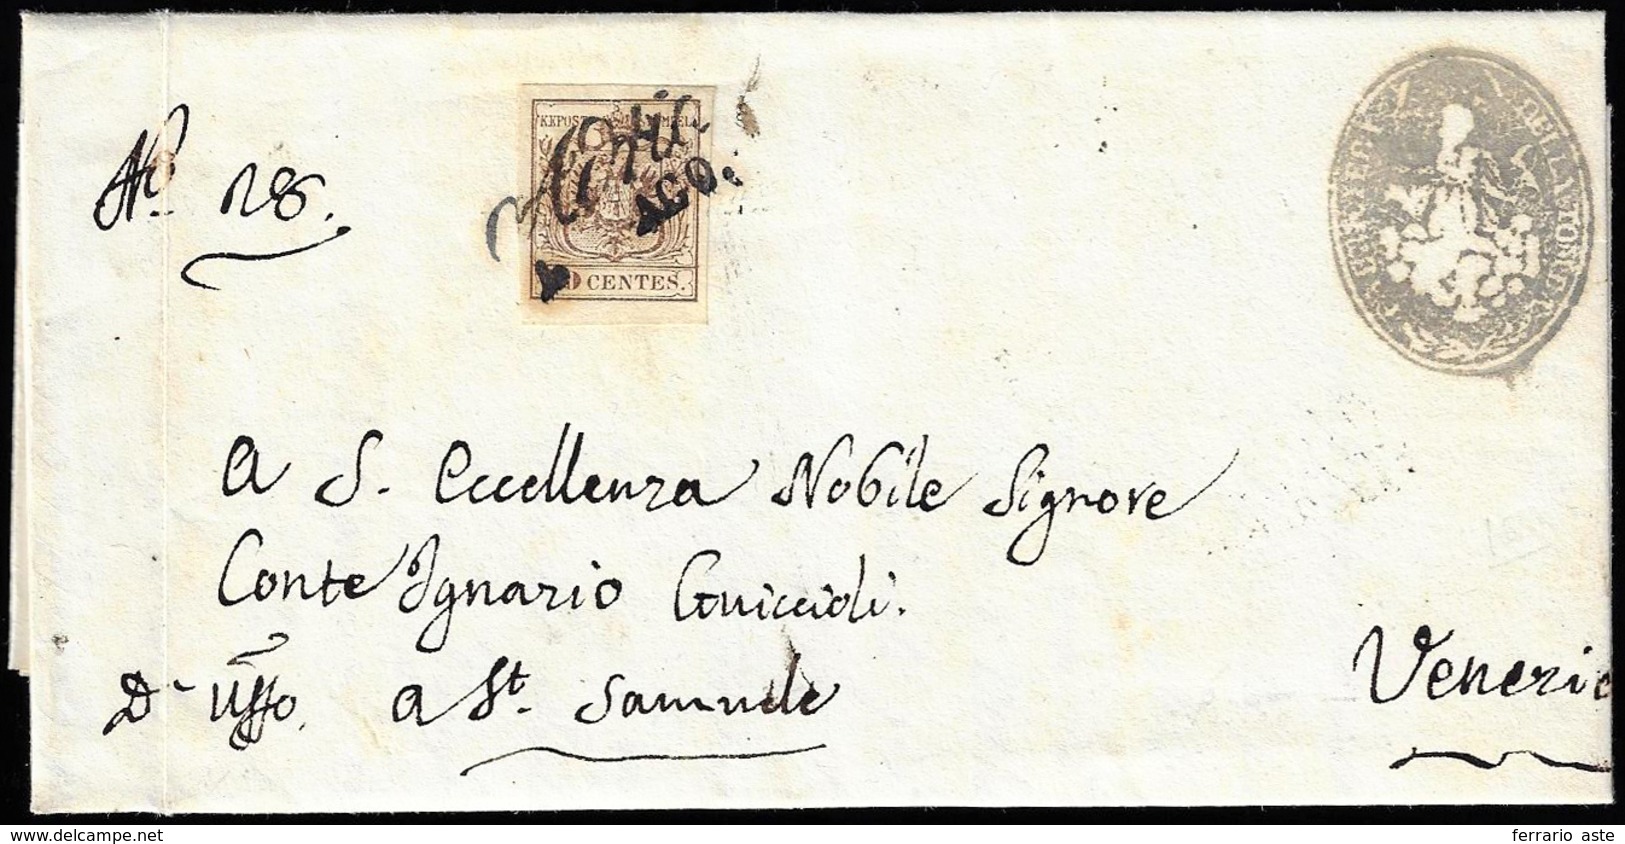 No. 28.
KKPOST STEMPEL
AGO.
CENTES.
A S. Eccellenza Nobile Signore
Conte Ignazio Guiccioli.
D' Uffo. a St. Samuele
Venezia
www.delcampe.net
ferrario aste